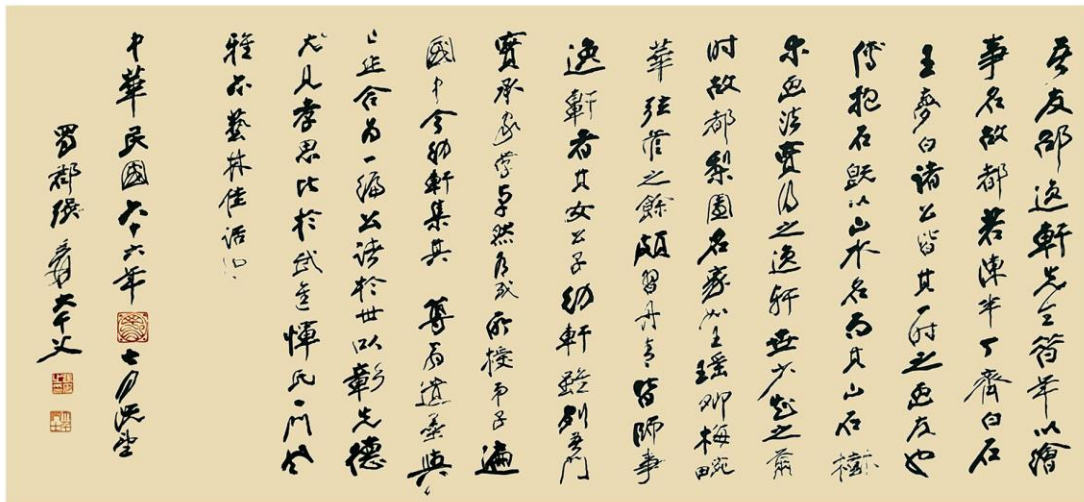 吾友邵逸軒先生年以繪
事名故都若陳半丁齊白石
王夢白諸公皆其一时之画友也
傅抱石既以山水名而其山石樹
木画法實得之逸軒世少知之爾
时故都梨園名家如王瑤卿梅畹
華弦管之餘頗習丹青皆師事
逸軒者其女公子幼軒雖列吾門
實承家學卓然有成所授弟子遍
國中今幼軒集其 尊翁遺墨與
己作合为一編公諸於世以彰先德
尤見孝思比於武進惲氏一門風
雅亦藝林佳話也
中華民國六十六年七月既望
蜀郡張爰大千父